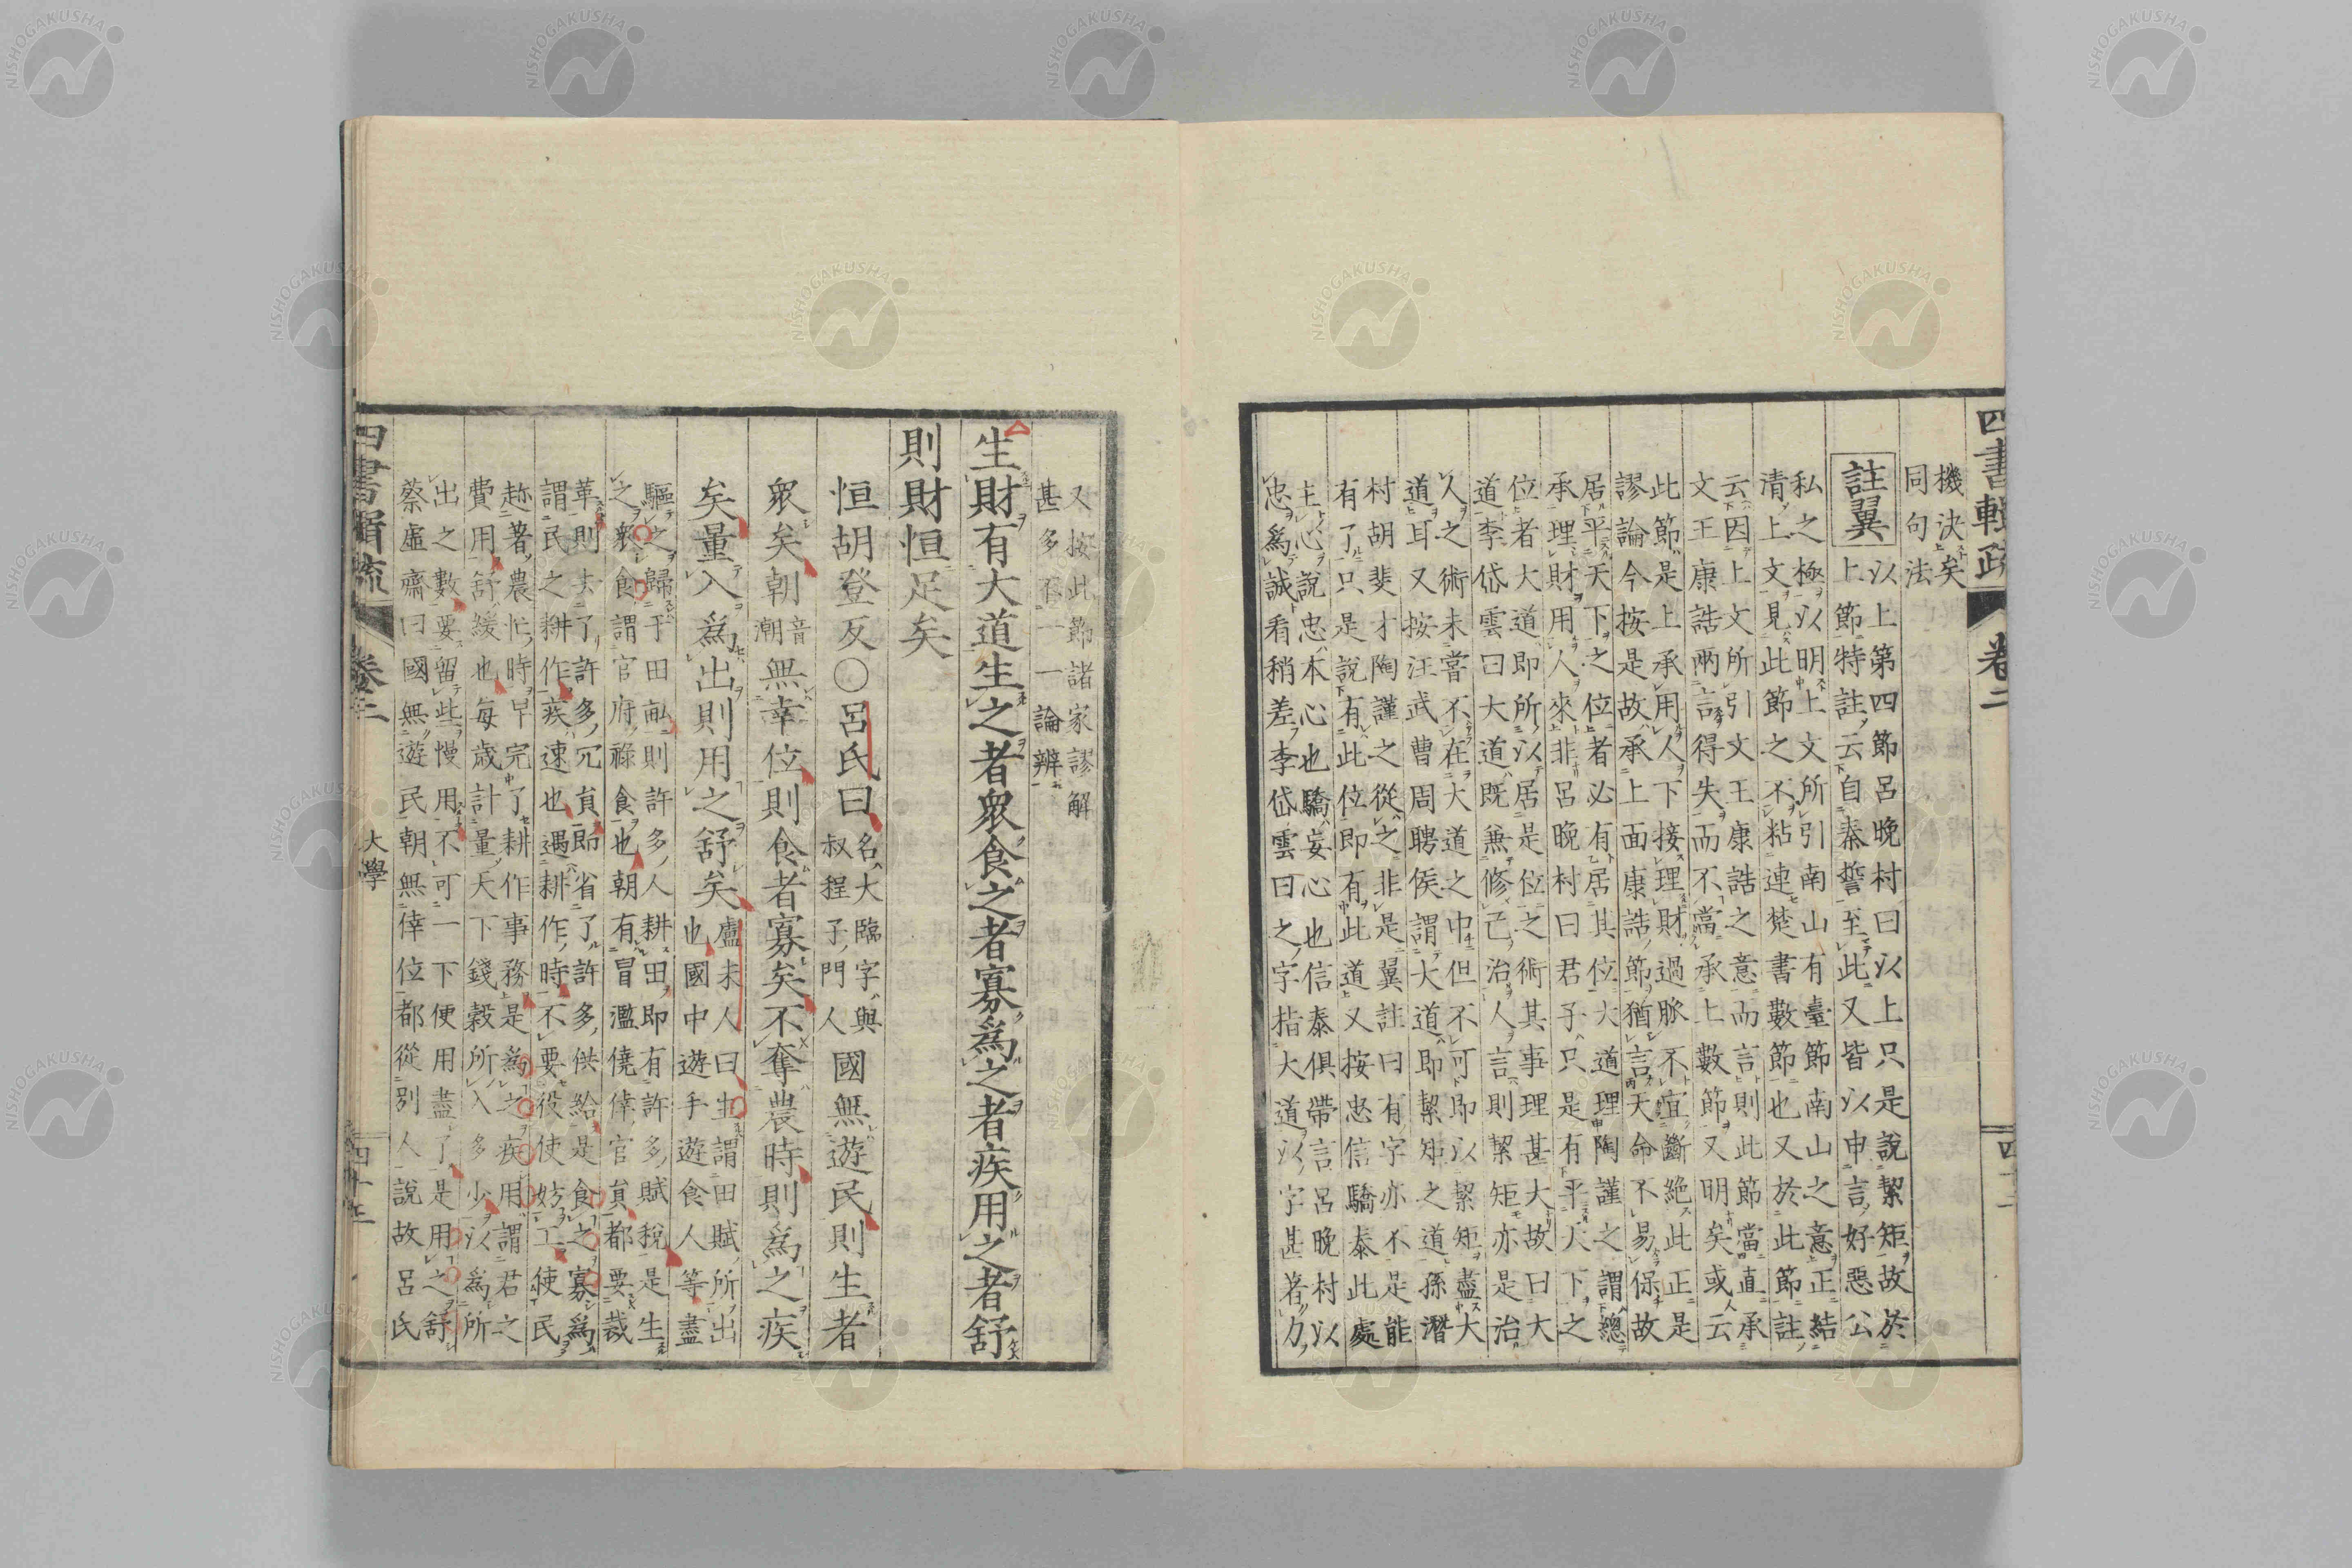 四書輯疏　卷二　四十二
機決矣
同句法
註翼
以上第四節呂晚村曰以上只是說絜矩故於
上節特註云自秦誓至此又皆以申言好惡公
私之極以明上文所引南山有臺節南山之意正結
清上文見此節之不粘連楚書數節也又於此節註
云因上文所引文王康誥之意而言則此節當直承
文王康誥兩言得失而不當承上數節又明矣或云
此節是上承用人下接理財過脈不宜斷絶此正是
謬論今按是故承上面康誥節猶言天命不易保故
居平天下之位者必有居其位大道理陶謹之謂總
承理財用人來非呂晚村曰君子只是有平天下之
位者大道即所以居是位之術其事理甚大故曰大
道李岱雲曰大道既無修己治人言則絜矩亦是治
人之術未嘗不在大道之中但不可即以絜矩盡大
道耳又按汪武曹周聘侯謂大道即絜矩之道孫潛
村胡斐才陶謹之從之非是翼註曰有字亦不是能
有了只是說有此位即有此道又按忠信驕泰此處
主心說忠本心也驕妄心也信泰俱帶言呂晚村以
忠爲誠看稍差李岱雲曰之字指大道以字甚著力
又按此節諸家謬解
甚多不一一論辨
生財有大道生之者衆食之者寡爲之者疾用之者舒
則財恒足矣
恒胡登反○呂氏曰名大臨字與叔程子門人國無遊民則生者
衆矣朝音潮無幸位則食者寡矣不奪農時則爲之疾
矣量入爲出則用之舒矣盧未人曰生謂田賦所出也國中遊手遊食人等盡
驅之歸于田畝則許多人耕田即有許多賦稅是生
之衆食謂官府祿食也朝有冒濫僥倖官員都要裁
革則去了許多冗員即省了許多供給是食之寡爲
謂民之耕作疾速也遇耕作時不要役使妨工使民
趂著農忙時早完了耕作事務是爲之疾用謂君之
費用舒緩也每歲計量天下錢穀所入多少以爲所
出之數要留些慢用不可一下便用盡了是用之舒
蔡虛齋曰國無遊民朝無倖位都從別人說故呂氏
四書輯疏　卷二　大學　四十三